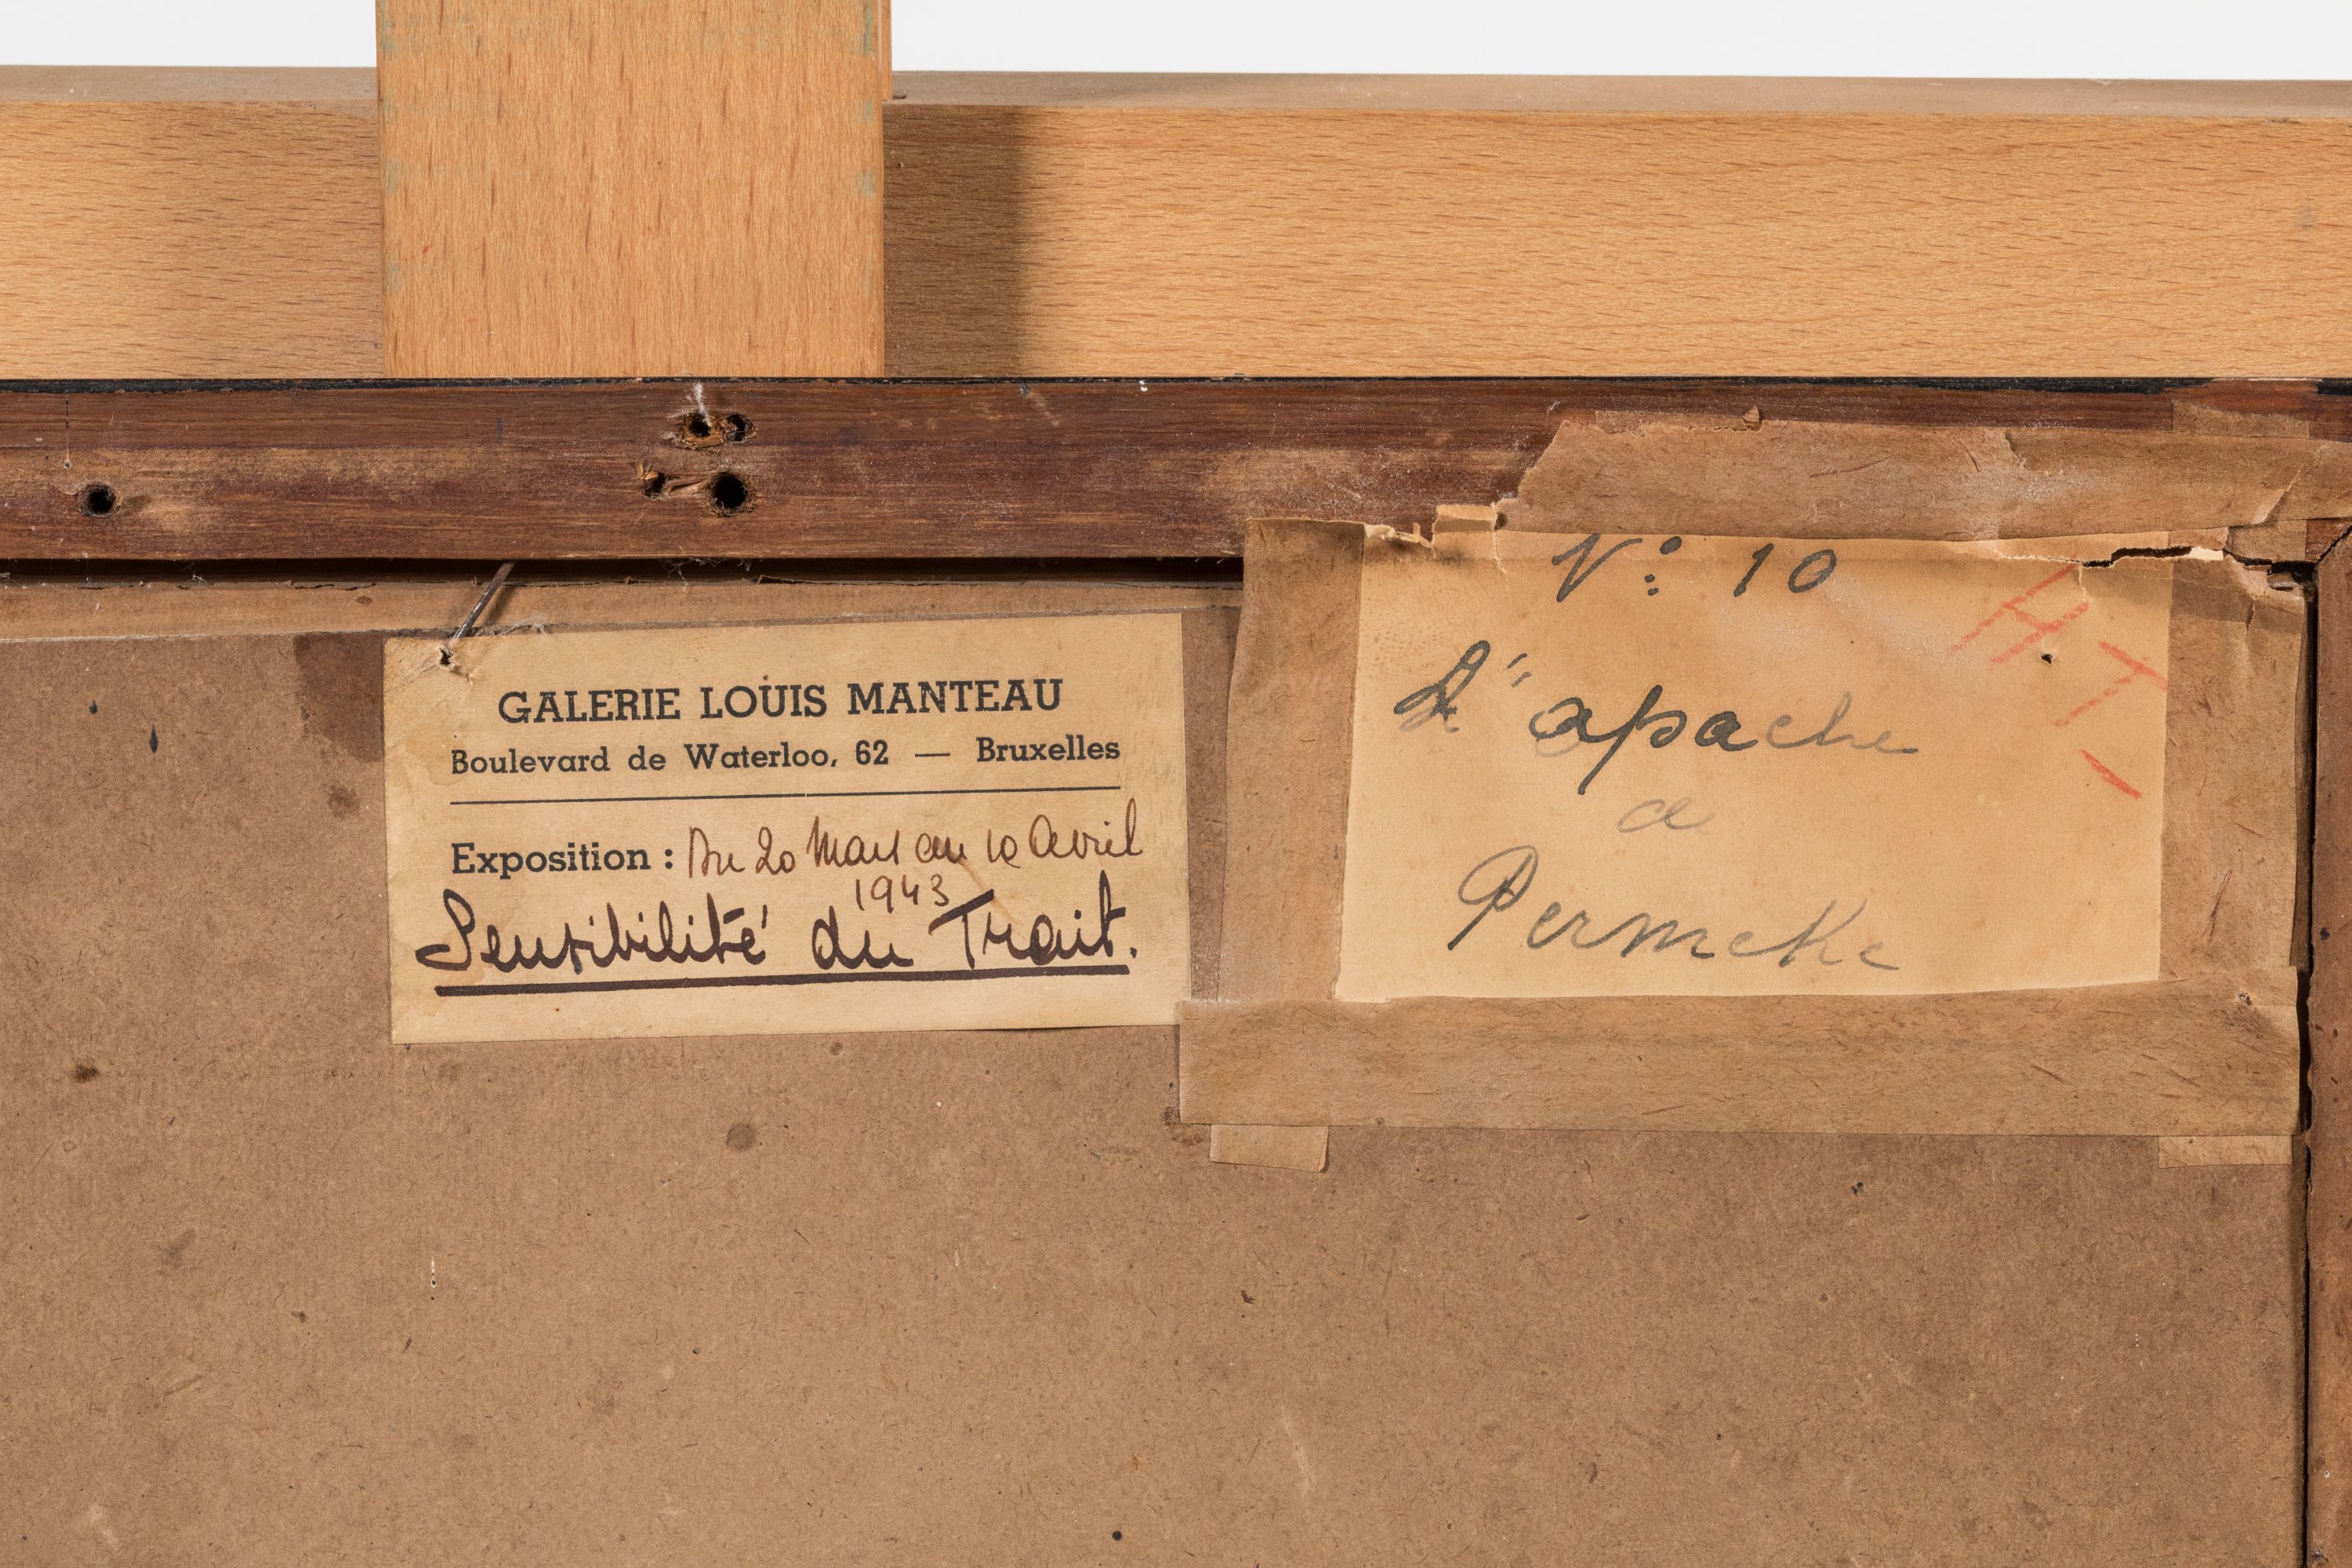 GALERIE LOUIS MANTEAU
Boulevard de Waterloo, 62 — Bruxelles
Exposition : Du 20 Mars au 10 Avril
1943
Sensibilité du Trait.
N: 10
L'apache
a
Permeke
H.T.